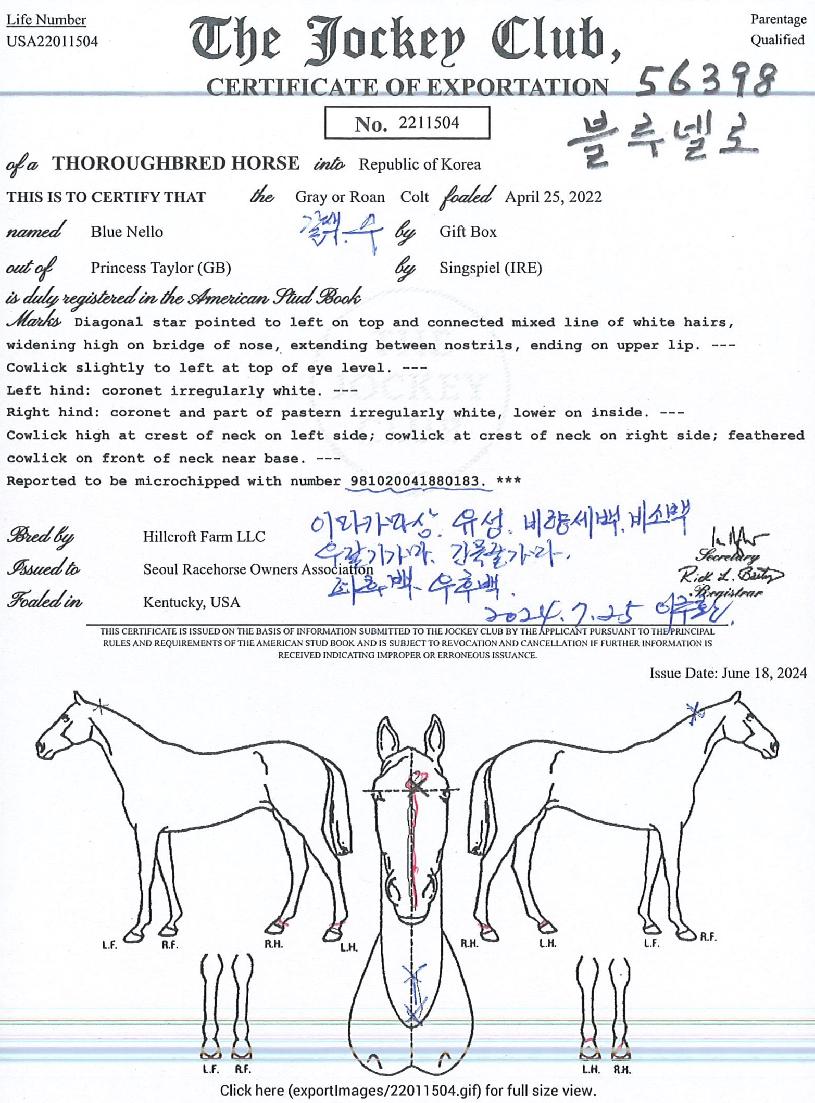 Life Number
USA22011504
The Jockey Club,
Parentage
Qualified
CERTIFICATE OF EXPORTATION
56398
No. 2211504
블루넬로
of a THOROUGHBRED HORSE into Republic of Korea
THIS IS TO CERTIFY THAT the Gray or Roan Colt foaled April 25, 2022
named Blue Nello
갈색. 수
by Gift Box
out of Princess Taylor (GB) by Singspiel (IRE)
is duly registered in the American Stud Book
Marks Diagonal star pointed to left on top and connected mixed line of white hairs,
widening high on bridge of nose, extending between nostrils, ending on upper lip. ---
Cowlick slightly to left at top of eye level. ---
Left hind: coronet irregularly white. ---
Right hind: coronet and part of pastern irregularly white, lower on inside. ---
Cowlick high at crest of neck on left side; cowlick at crest of neck on right side; feathered
cowlick on front of neck near base. ---
Reported to be microchipped with number 981020041880183. ***
유성. 비량세백.
Bred by Hillcroft Farm LLC
Issued to Seoul Racehorse Owners Association
우후백.
Foaled in Kentucky, USA
2024.7.25
Secretary
Rick L. Bailey
Registrar
THIS CERTIFICATE IS ISSUED ON THE BASIS OF INFORMATION SUBMITTED TO THE JOCKEY CLUB BY THE APPLICANT PURSUANT TO THE PRINCIPAL
RULES AND REQUIREMENTS OF THE AMERICAN STUD BOOK AND IS SUBJECT TO REVOCATION AND CANCELLATION IF FURTHER INFORMATION IS
RECEIVED INDICATING IMPROPER OR ERRONEOUS ISSUANCE.
Issue Date: June 18, 2024
L.F. R.F. R.H. L.H. R.H. L.H. L.F. R.F.
L.F. R.F. L.H. R.H.
Click here (exportImages/22011504.gif) for full size view.